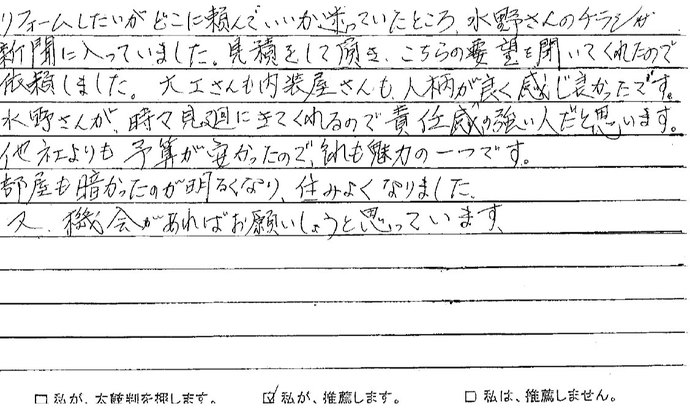 リフォームしたいがどこに頼んでいいか迷っていたところ、水野さんのチラシが
新聞に入っていました。見積をして頂き、こちらの要望を聞いてくれたので
依頼しました。大工さんも内装屋さんも、人柄が良く感じ良かったです。
水野さんが、時々見廻に来てくれるので責任感の強い人だと思います。
他社よりも予算が安かったので、それも魅力の一つです。
部屋も暗かったのが明るくなり、住みよくなりました。
又、機会があればお願いしようと思っています。
□ 私が、太鼓判を押します。 ☑ 私が、推薦します。 □ 私は、推薦しません。